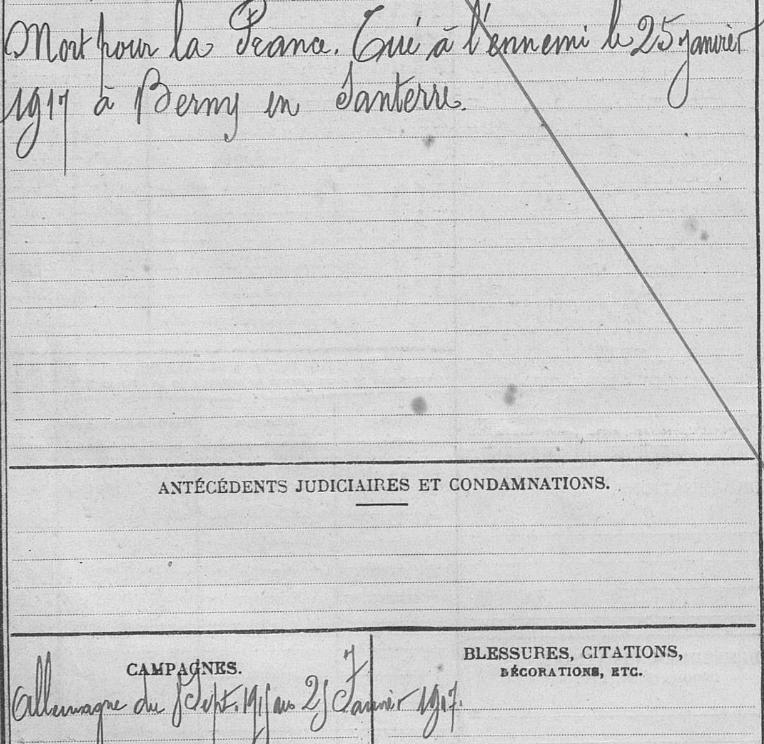 Mort pour la France. Tué à l'ennemi le 25 janvier
1917 à Berny en Santerre.
ANTÉCÉDENTS JUDICIAIRES ET CONDAMNATIONS.
CAMPAGNES.
Allemagne du 8 Sept. 1915 au 25 Janvier 1917.
BLESSURES, CITATIONS,
DÉCORATIONS, ETC.